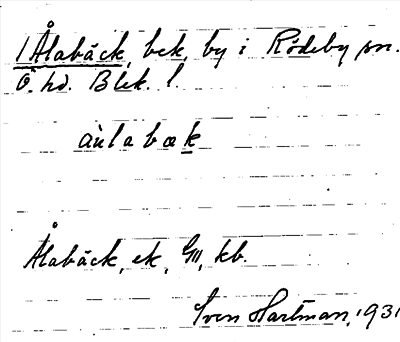 1 Ålabäck, bek. by i Rödeby sn.
Ö. hd. Blek. l.
àulabæk
Ålabäck, ek, GM, kb.
Sven Hartman, 1931